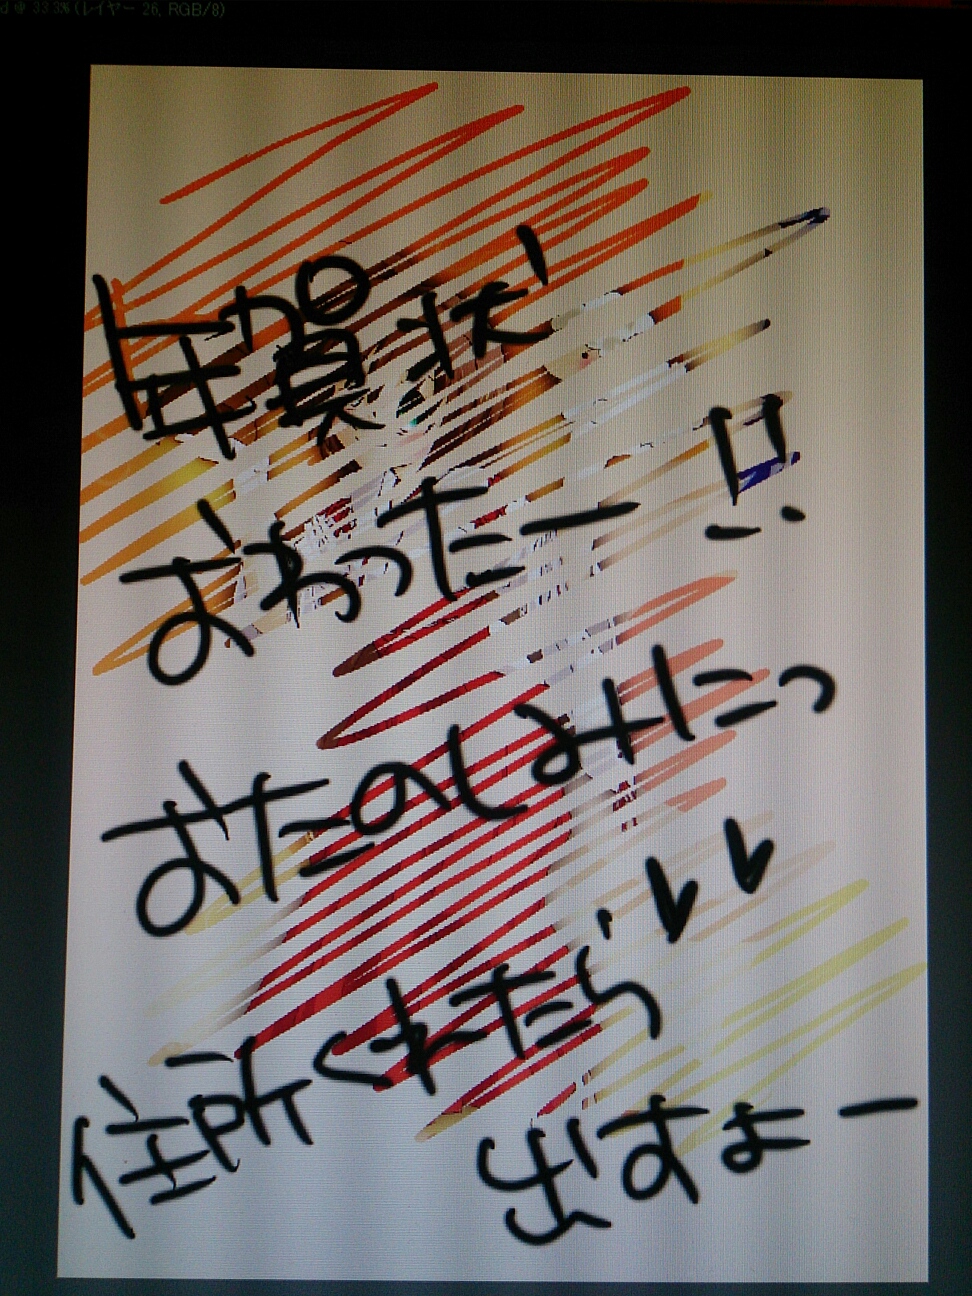 d @ 33.3% (レイヤー 26, RGB/8)
年賀状
おわったー!!
おたのしみにっ
住所くれたら
出すよー